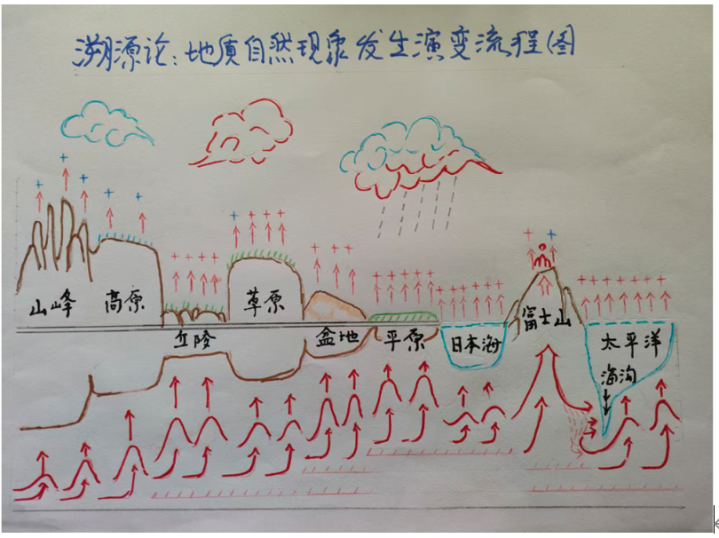 溯源论:地质自然现象发生演变流程图
山峰
高原
丘陵
草原
盆地
平原
日本海
富士山
太平洋
海沟